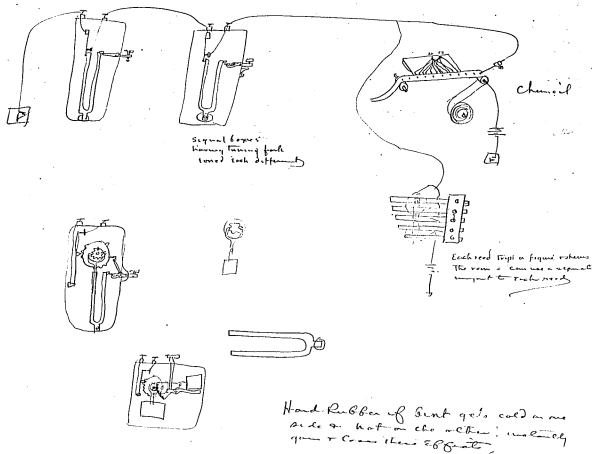 Chemical
signal boxes
having tuning fork
tuned each different
Each reed trips a figure & shews
The room & can use a separate
magnet to each reed
Hard Rubber if bent gets cold on one
side & hot on the other: instantly
gains & loses these effects,